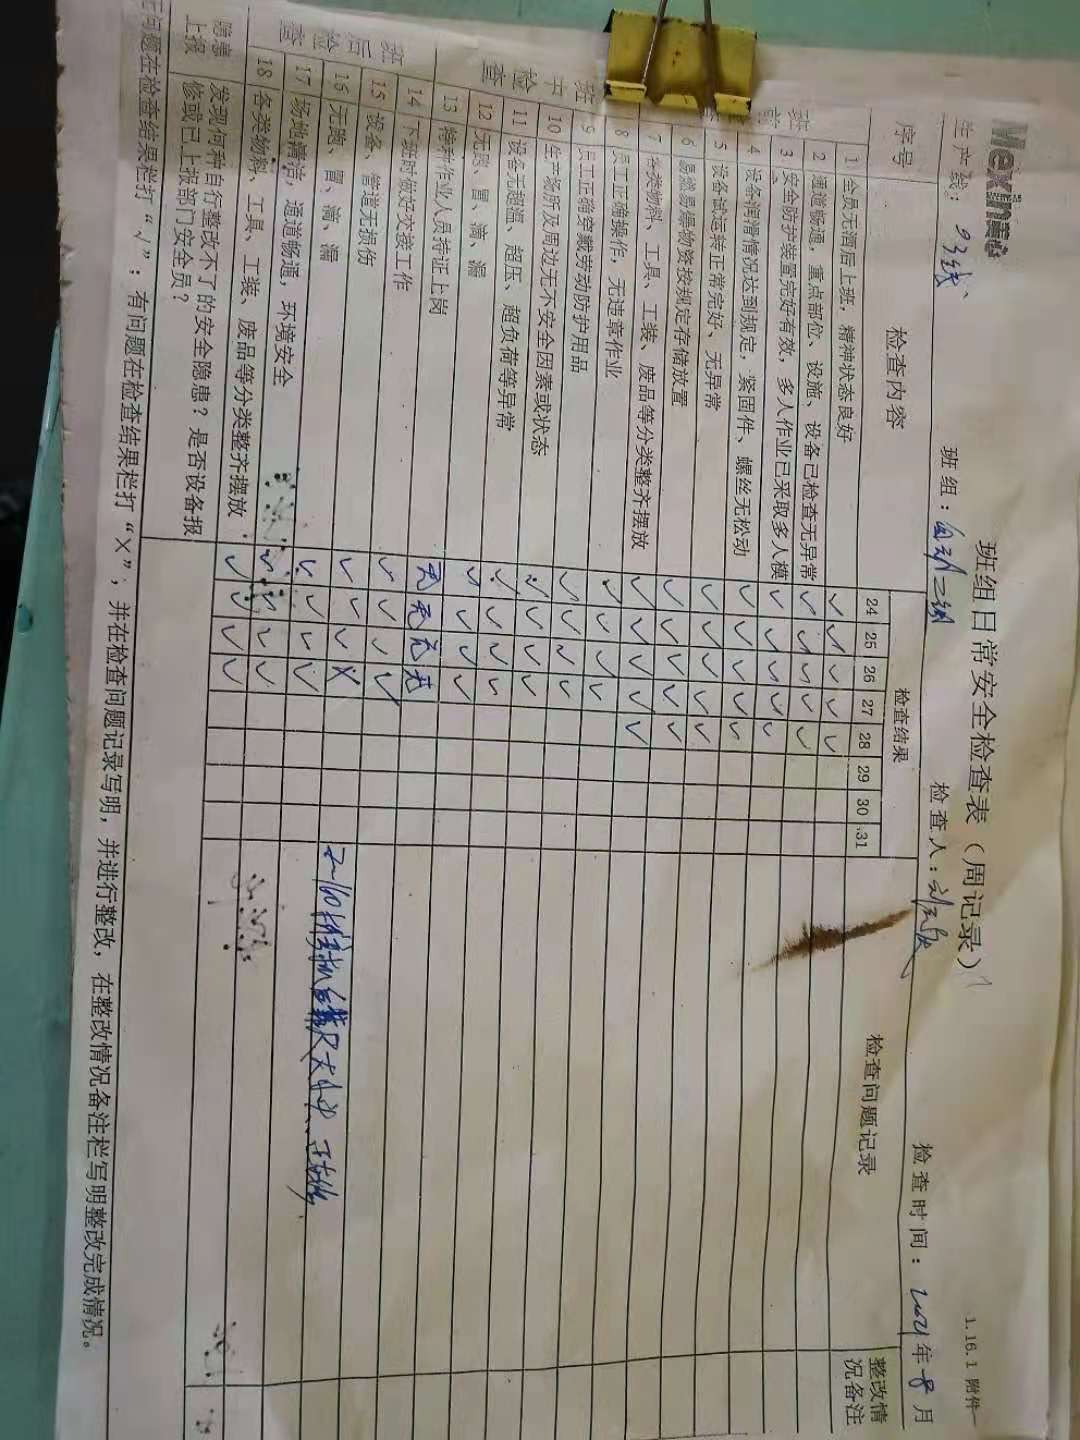 Mexin美心
1.16.1 附件一
班组日常安全检查表（周记录）
生产线：93线 班组：自动二组 检查人： 检查时间：2021年8月
序号 检查内容 检查结果 检查问题记录 整改情况备注
24 25 26 27 28 29 30 31
班前
1 全员无酒后上班，精神状态良好 √ √ √ √ √
2 通道畅通，重点部位、设施、设备已检查无异常 √ √ √ √ √
3 安全防护装置完好有效，多人作业已采取多人模 √ √ √ √ √
4 设备润滑情况达到规定，紧固件、螺丝无松动 √ √ √ √ √
5 设备试运转正常完好、无异常 √ √ √ √ √
6 易燃易爆物资按规定存储放置 √ √ √ √ √
7 各类物料、工具、工装、废品等分类整齐摆放 √ √ √ √ √
班中检查
8 员工正确操作，无违章作业 √ √ √ √
9 员工正确穿戴劳动防护用品 √ √ √ √
10 生产场所及周边无不安全因素或状态 √ √ √ √
11 设备无超温、超压、超负荷等异常 √ √ √ √
12 无跑、冒、滴、漏 √ √ √ √
13 特种作业人员持证上岗 无 无 无 无
班后检查
14 下班时做好交接工作 √ √ √ √
15 设备、管道无损伤 √ √ √ X
16 无跑、冒、滴、漏 √ √ √ √
17 场地清洁，通道畅通，环境安全 √ √ √ √
18 各类物料、工具、工装、废品等分类整齐摆放 √ √ √ √
隐患上报
发现何种自行整改不了的安全隐患？是否设备报
修或已上报部门安全员？
无问题在检查结果栏打“√”；有问题在检查结果栏打“X”，并在检查问题记录写明，并进行整改，在整改情况备注栏写明整改完成情况。